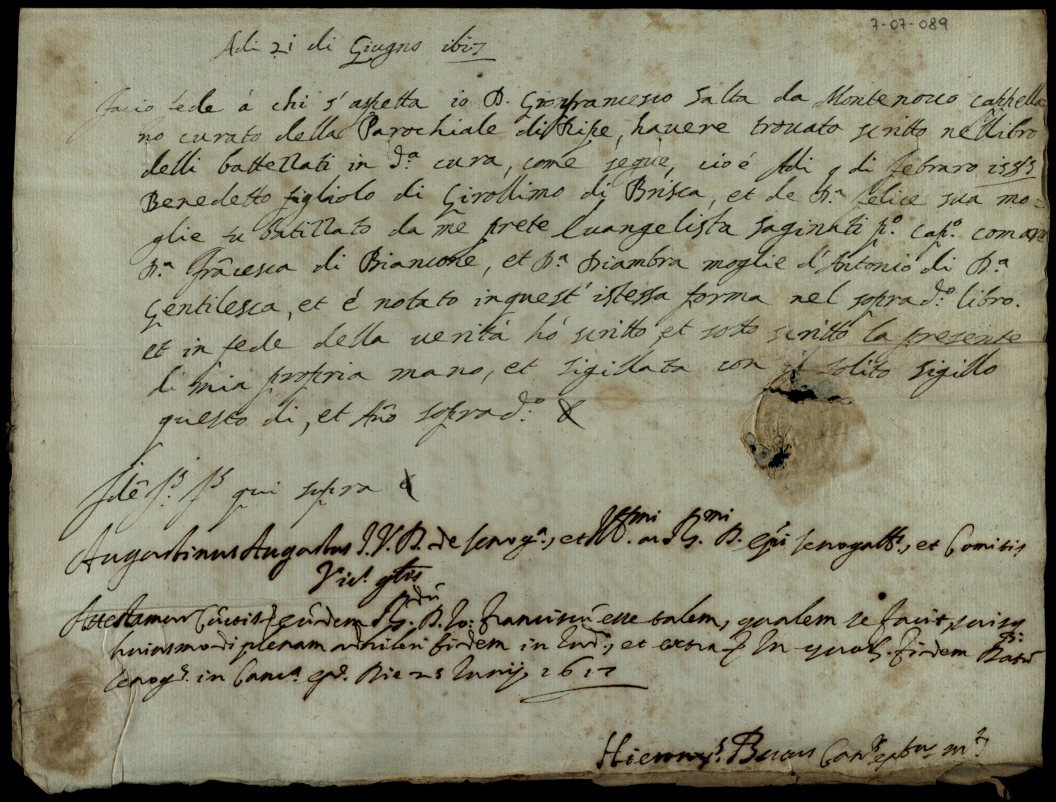 7-07-089
Adi 21 di Giugno 1617
Facio fede á chi s'aspetta io D. Gionfrancesco Salta da Montenovo cappella
no curato della Parochiale di Ripe, havere trovato scritto nel libro
delli battezzati in d.ª cura, come segue, cioé Adi 9 di febraro 1585
Benedetto figliolo di Girollimo di Brisca, et de D.ª felice sua mo-
glie fu batizzato da me prete Evangelista Saginati p.º cap.º comare
D.ª frãcesca di Biancone, et D.ª Diambra moglie d'Antonio di D.ª
Gentilesca, et é notato in quest' istessa forma nel sopra d.º libro.
et in fede della veritá hó scritto, et sotto scritto la presente
di mia propria mano, et sigillata con il solito sigillo
questo di, et Año sopra d.º
qui sopra
Augustinus Augustus I. V. D. de Senog.ª, et Ill.mi ac R.mi D. Epi Senogall.s, et Comitis
Vic.s glis
Attestamur eũdem D. Io: Franciscũ esse talem, qualem se facit,
huiusmodi plenam adhiberi fidem in Iud.º, et extra In quor. fidem Datũ
Senog.ª in Canc.ª ep. Die 25 Iunij 1617
Hieron.s